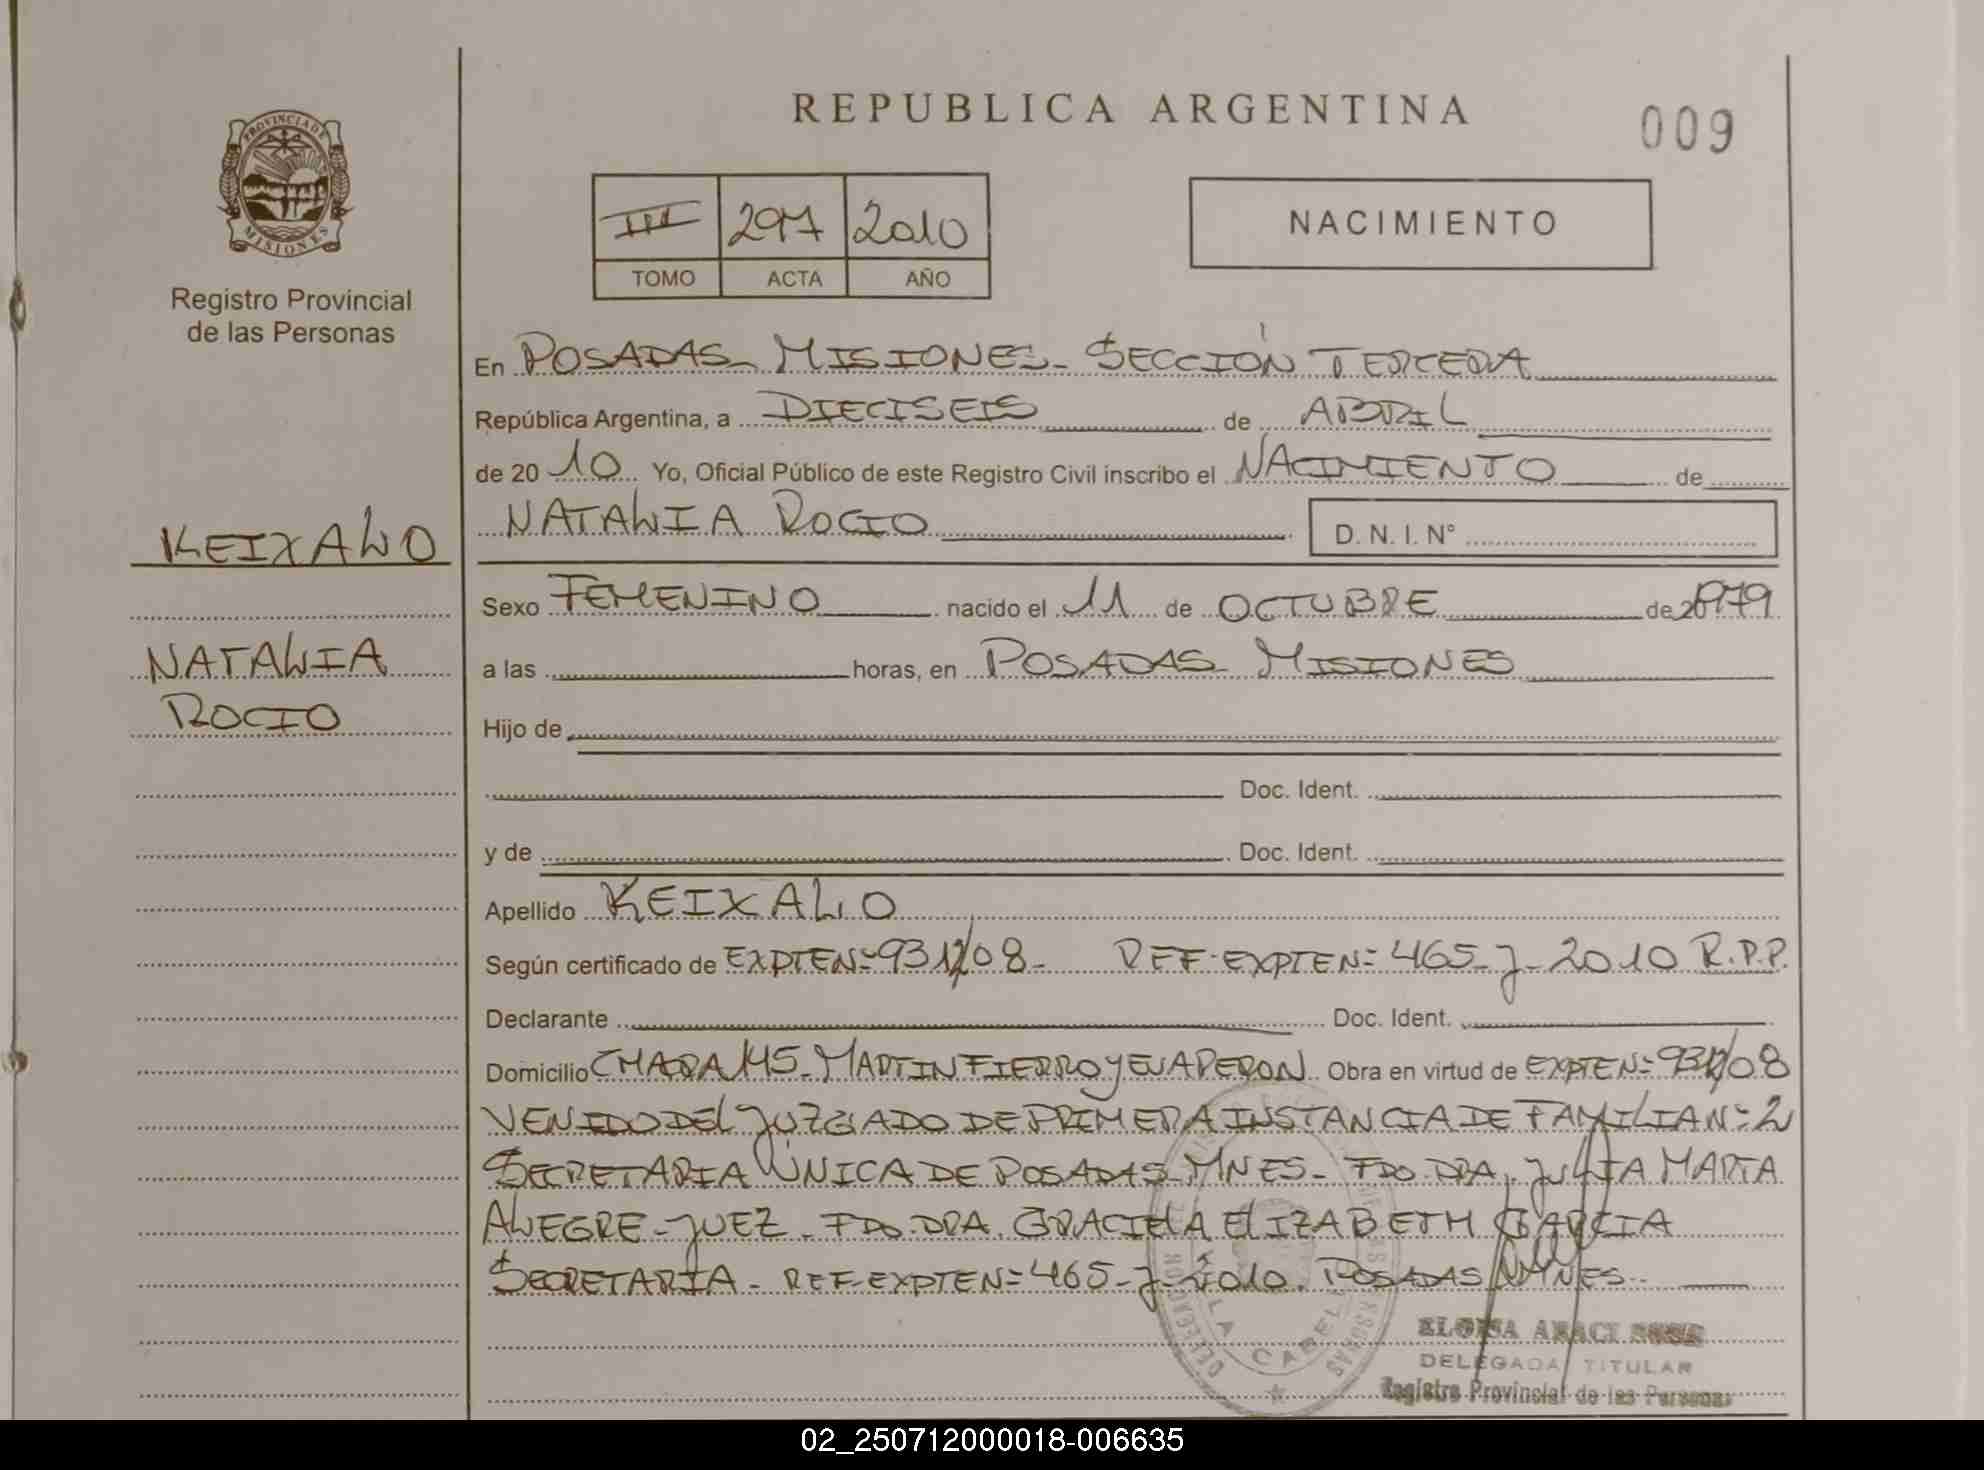 REPUBLICA ARGENTINA
009
PROVINCIA DE
MISIONES
Registro Provincial
de las Personas
III 297 2010
TOMO ACTA AÑO
NACIMIENTO
En POSADAS - MISIONES - SECCIÓN TERCERA
República Argentina, a DIECISEIS de ABRIL
de 20 10 Yo, Oficial Público de este Registro Civil inscribo el NACIMIENTO de
NATALIA ROCIO D. N. I. N°
KEIXALO
NATALIA
ROCIO
Sexo FEMENINO nacido el 11 de OCTUBRE de 1979
a las horas, en POSADAS - MISIONES
Hijo de
Doc. Ident.
y de Doc. Ident.
Apellido KEIXALO
Según certificado de EXPTE Nº 931/08 - REF. EXPTE Nº 465-J-2010 R.P.P.
Declarante Doc. Ident.
Domicilio CHACRA 145 - MARTIN FIERRO Y EVA PERON Obra en virtud de EXPTE Nº 931/08
VENIDO DEL JUZGADO DE PRIMERA INSTANCIA DE FAMILIA Nº 2
SECRETARIA ÚNICA DE POSADAS - MNES - FDO. DRA. JULIA MARTA
ALEGRE - JUEZ - FDO. DRA. GRACIELA ELIZABETH GARCIA
SECRETARIA - REF. EXPTE Nº 465-J-2010. POSADAS MNES.
VILLA CABELLO
ELOISA ARACI
DELEGADA TITULAR
Registro Provincial de las Personas
02_250712000018-006635